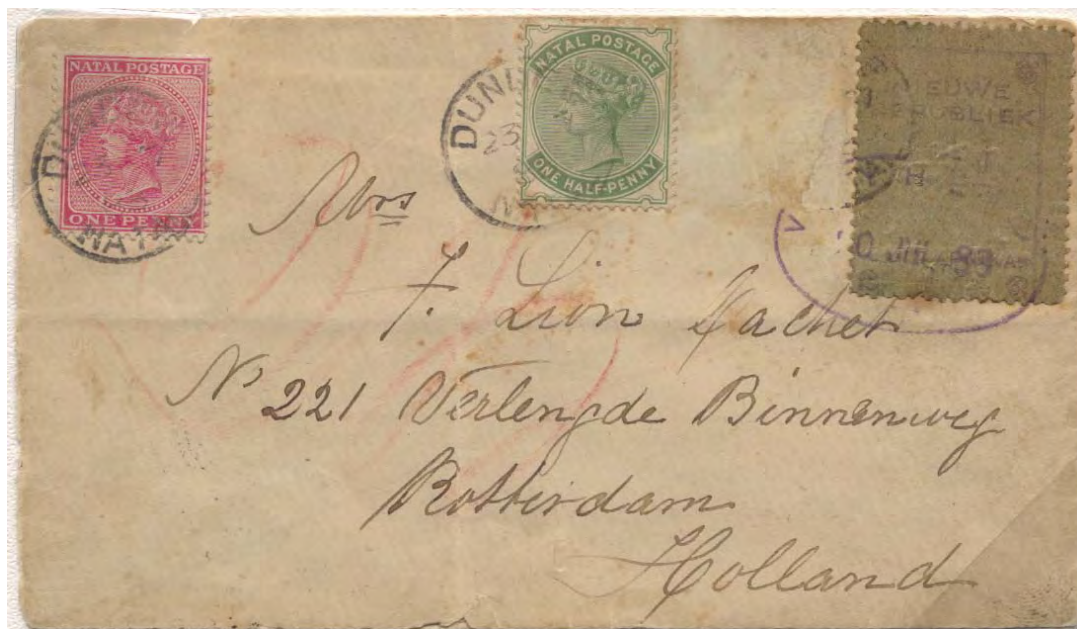 NATAL POSTAGE
ONE PENNY
NATAL POSTAGE
ONE HALF-PENNY
DUN
23
NIEUWE
REPUBLIEK
Mrs
F. Lion Cachet
No 221 Verlengde Binnenweg
Rotterdam
Holland